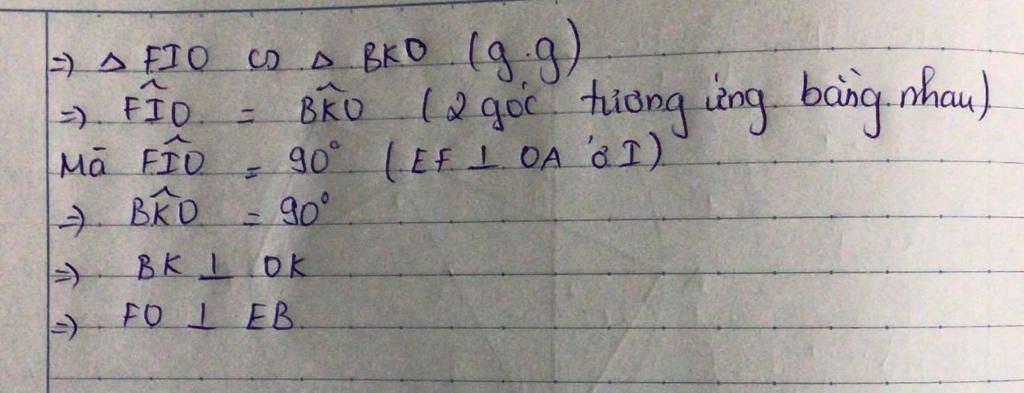 => △ FIO ∽ △ BKO (g.g)
=> FÎO = BK̂O (2 góc tương ứng bằng nhau)
Mà FÎO = 90° (EF ⊥ OA ở I)
=> BK̂O = 90°
=> BK ⊥ OK
=> FO ⊥ EB